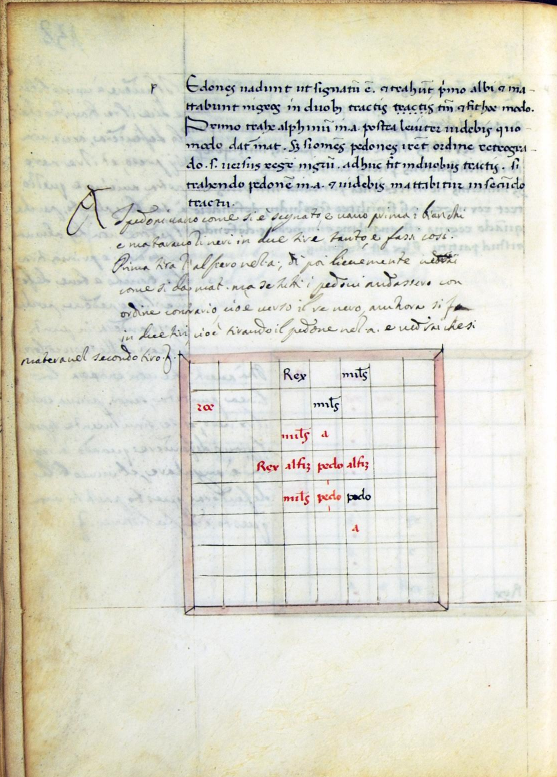 Pedones uadunt ut signatū ē. & trahūt p̄mo albi & ma-
ttabunt nigros in duobꝫ tractis tractis tm̄ & fit hoc modo.
Primo trahe alphinū in .a. postea leuiter uidebis quo
modo dat mat. Si pedones iret ordine retrogra-
do .s. uersus regē nigrū. adhuc fit in duobus tractis. si
trahendo pedonē in .a. & uidebis mattabitur in secūdo
tractu.
pedoni uano come si è segnato e uano prima i bianchi
e mataranno li neri in due tire tanto e fassi cosi.
Prima tira l'alfero nela a, di poi lievemente
come si da mat. ma se li pedoni andassero con
ordine contrario cioè verso il re nero, anchora si fa
in due tiri cioè tirando il pedone nela a. e che si
matera nel secondo tiro
Rex mil̄s
roc mil̄s
mil̄s a
Rex alfiꝫ pedo alfiꝫ
mil̄s pedo pedo
a